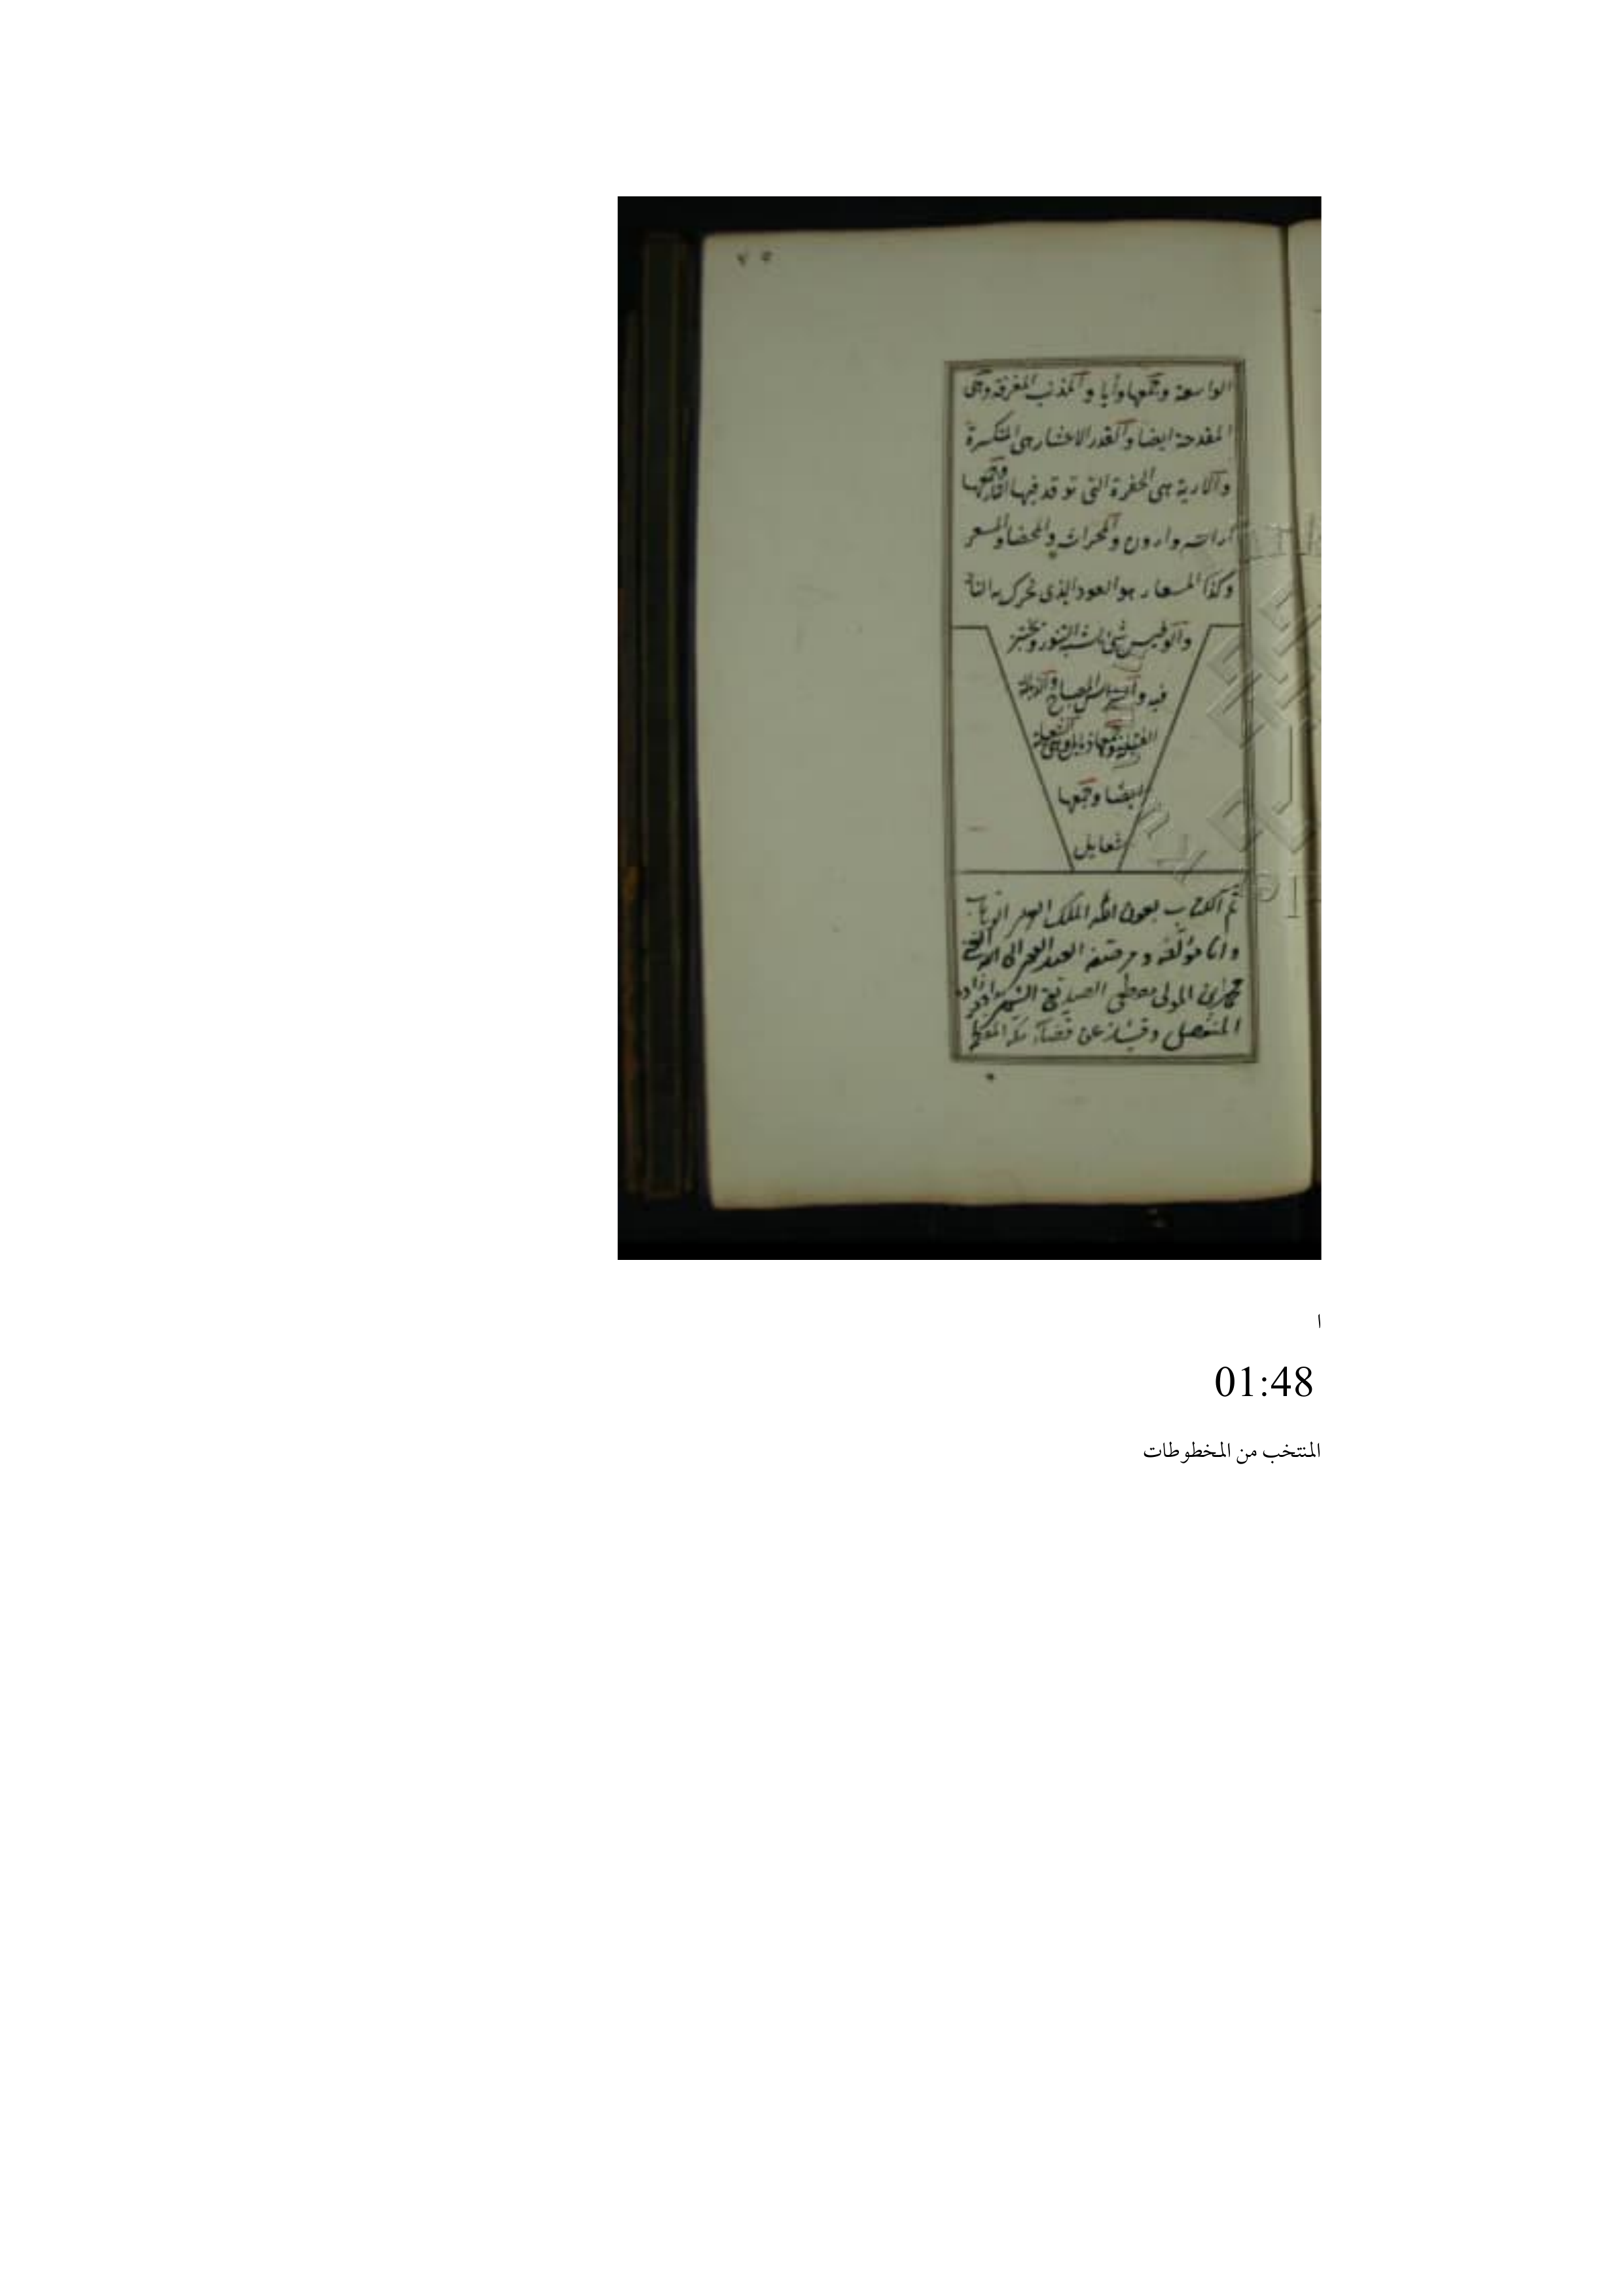 الواسعة وجمعها وأيا والمذنب المغرفة وهى
المقدحة ايضا والقدر الاعشار هى المتكسرة
والارية هى الحفرة التى توقد فيها النار وجمعها
ارات وارون والمحراث والمحضا والمسعر
وكذا المسعار هو العود الذى تحرك به النار
والوطيس شئ يشبه التنور ويختبز
فيه والنبراس المصباح والذبالة
الفتيلة وجمعها ذبايل وهى الشعيلة
ايضا وجمعها
شعايل
تم الكتاب بعون الله الملك الوهاب
وانا مؤلفه العبد الفقير الى الله الغنى
المولى مصطفى الصديقى الشهير
المنفصل عن قضاء مكة المكرمة
ا
01:48
المنتخب من المخطوطات